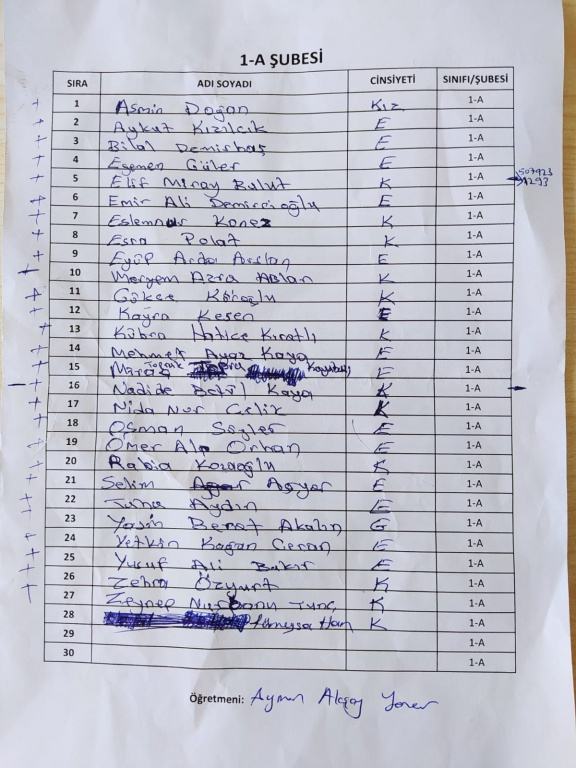 1-A ŞUBESİ
SIRA ADI SOYADI CİNSİYETİ SINIFI/ŞUBESİ
1 Asmin Doğan Kız 1-A
2 Aykut Kızılcık E 1-A
3 Bilal Demirbaş E 1-A
4 Egemen Güler E 1-A
5 Elif Miray Bulut K 1-A
6 Emir Ali Demircioğlu E 1-A
7 Eslemnur Konez K 1-A
8 Esra Polat K 1-A
9 Eyüp Arda Arslan E 1-A
10 Meryem Azra Ablan K 1-A
11 Gökçe Köroğlu K 1-A
12 Kayra Kesen E 1-A
13 Kübra Hatice Kıratlı K 1-A
14 Mehmet Ayaz Kaya E 1-A
15 Miraç Kayabaş E 1-A
16 Nadide Betül Kaya K 1-A
17 Nida Nur Çelik K 1-A
18 Osman Sözler E 1-A
19 Ömer Alp Orhan E 1-A
20 Rabia Kozaoğlu K 1-A
21 Selim Aşıyer E 1-A
22 Tuna Aydın E 1-A
23 Yasin Berat Akalın G 1-A
24 Yetkin Kağan Ceran E 1-A
25 Yusuf Ali Bakır E 1-A
26 Zehra Özyurt K 1-A
27 Zeynep Nurbanu Tunç K 1-A
28 Han K 1-A
29 1-A
30 1-A
Öğretmeni: Aymen Akçay Yener